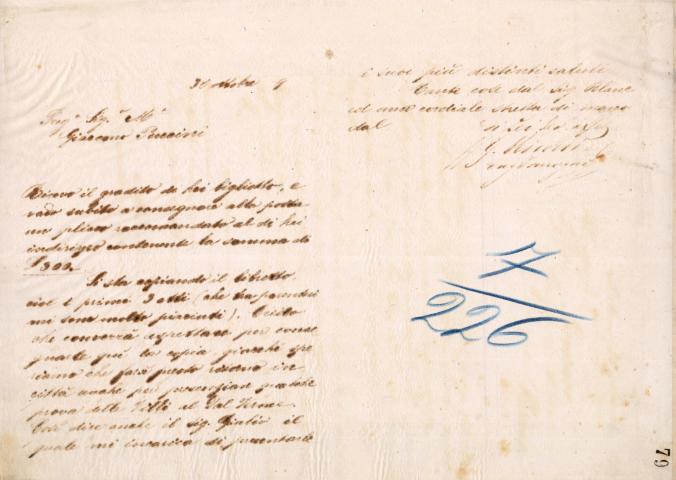 31 ottobre 9
Preg.º Sig.r M.º
Giacomo Puccini
Ricevo il gradito di Lei biglietto, e
vado subito a consegnare alla posta
un plico raccomandato al di Lei
indirizzo contenente la somma di
£ 300.-
Si sta copiando il libretto
cioè i primi 3 atti (che tra parentesi
mi sono molto piaciuti). Credo
che converrà aspettare per conse
gnarle qui la copia giacchè spe
riamo che farà presto ritorno in
città anche per presenziare qualche
prova delle Villi al Dal Verme.
Così dice anche il sig. Giulio il
quale mi incarica di presentarle
i suoi più distinti saluti
Tante cose dal sig.
ed una cordiale stretta di mano
dal
7
226
79